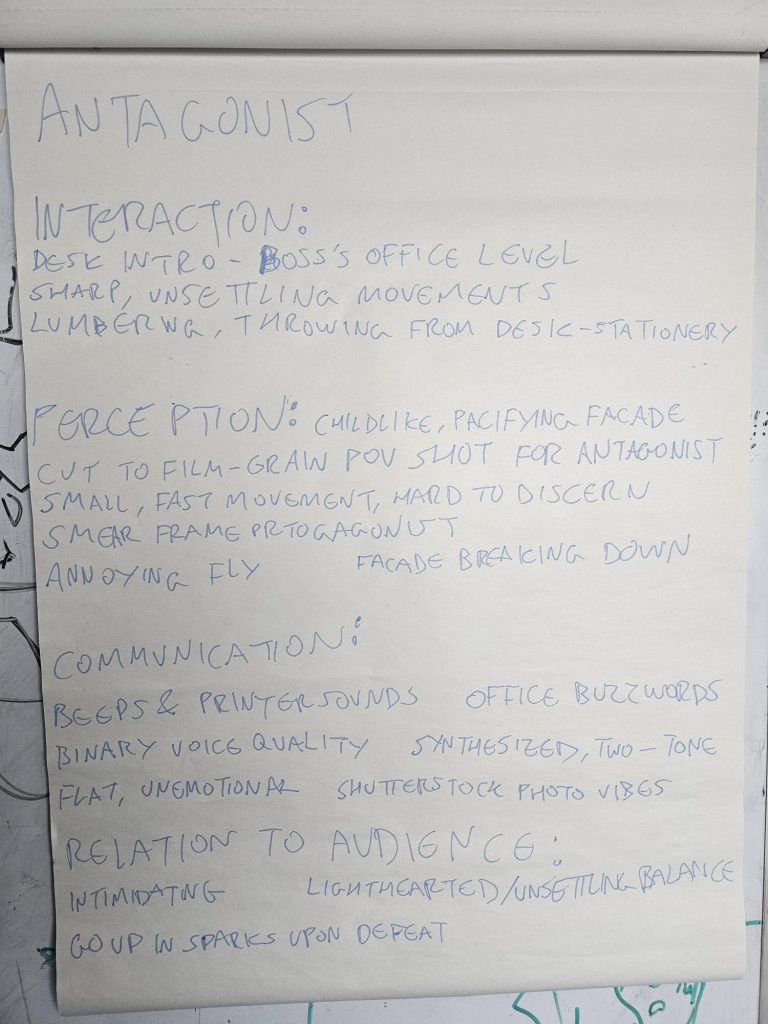 ANTAGONIST
INTERACTION:
DESK INTRO - BOSS'S OFFICE LEVEL
SHARP, UNSETTLING MOVEMENTS
LUMBERING, THROWING FROM DESK-STATIONERY
PERCEPTION: CHILDLIKE, PACIFYING FACADE
CUT TO FILM-GRAIN POV SHOT FOR ANTAGONIST
SMALL, FAST MOVEMENT, HARD TO DISCERN
SMEAR FRAME PRTOGAGONUT
ANNOYING FLY FACADE BREAKING DOWN
COMMUNICATION:
BEEPS & PRINTER SOUNDS OFFICE BUZZWORDS
BINARY VOICE QUALITY SYNTHESIZED, TWO-TONE
FLAT, UNEMOTIONAL SHUTTERSTOCK PHOTO VIBES
RELATION TO AUDIENCE:
INTIMIDATING LIGHTHEARTED/UNSETTLING BALANCE
GO UP IN SPARKS UPON DEFEAT